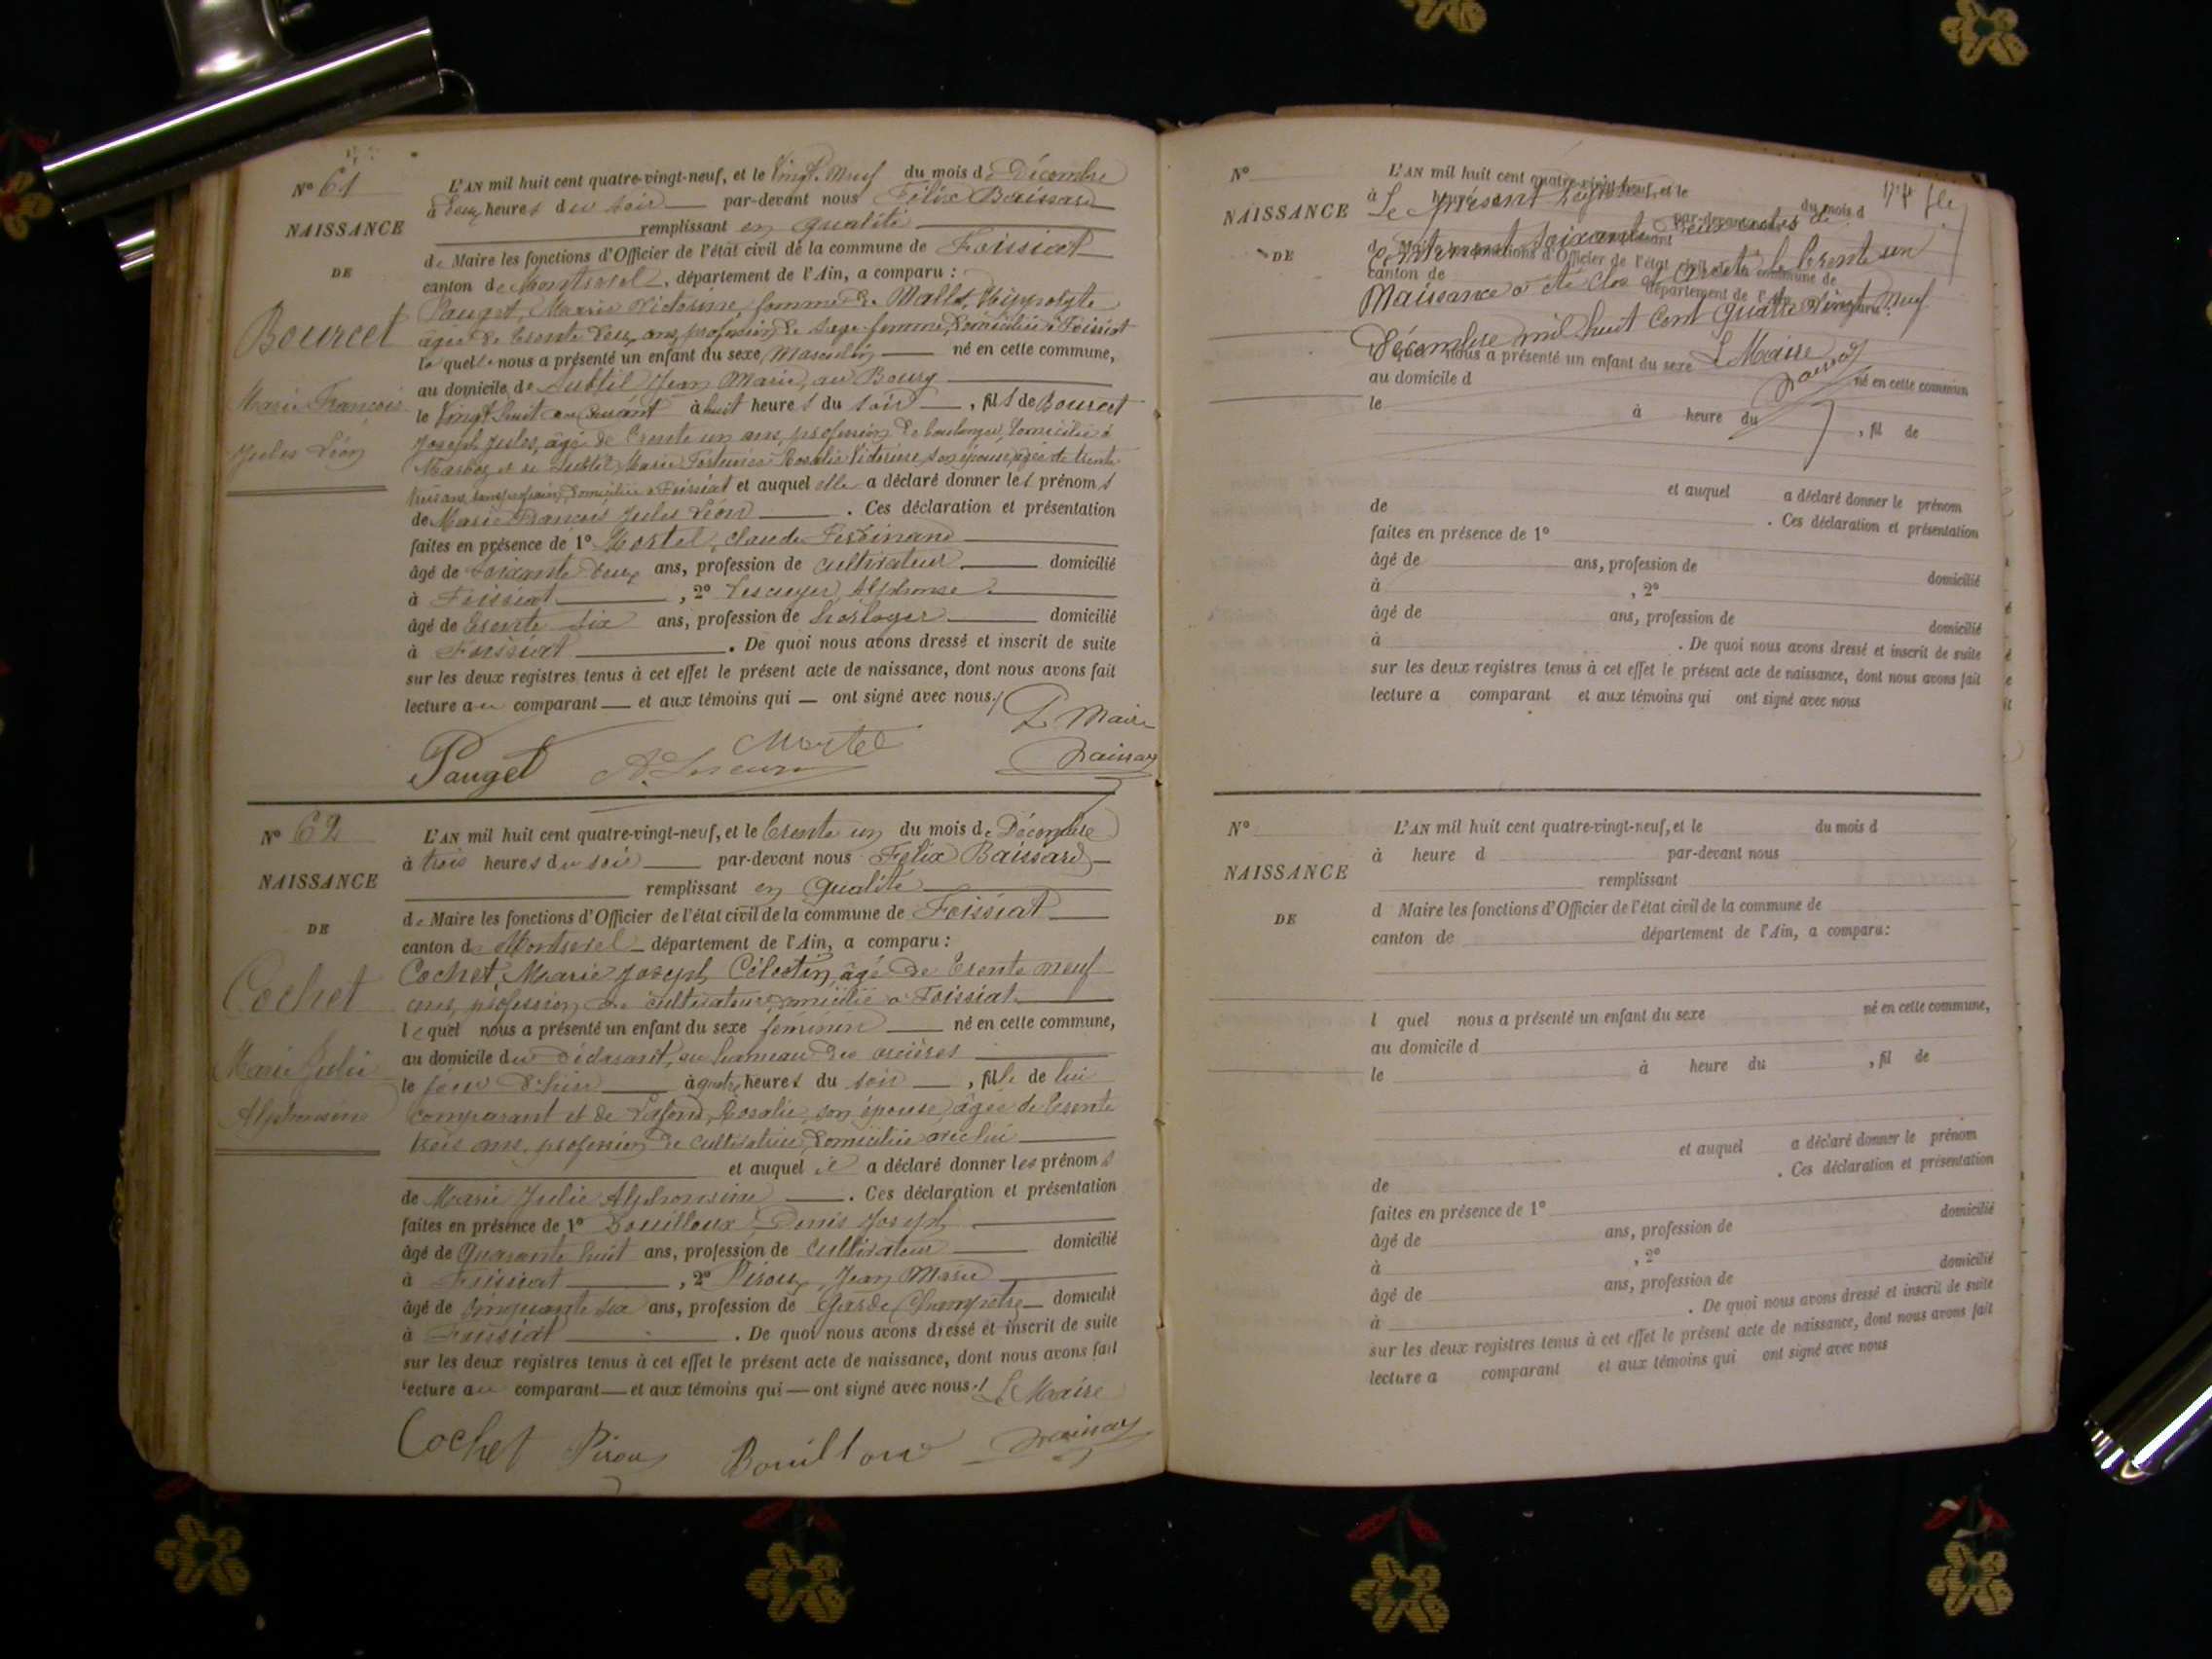 N° 61
NAISSANCE
DE
Bourcet
Marie François
Jules Léon
L'AN mil huit cent quatre-vingt-neuf, et le Vingt Neuf du mois de Décembre
à deux heures du soir par-devant nous Félix Baissard
remplissant en qualité
de Maire les fonctions d'Officier de l'état civil de la commune de Foissiat
canton de Montrevel, département de l'Ain, a comparu :
Pauget, Marie Victorine, femme de Mallet, Hippolyte
âgée de trente deux ans, profession de sage-femme, domiciliée à Foissiat
laquelle nous a présenté un enfant du sexe Masculin né en cette commune,
au domicile de Subtil Jean Marie, au Bourg
le Vingt huit du Courant à huit heures du soir, fils de Bourcet
Joseph Jules, âgé de trente un ans, profession de boulanger, domicilié à
Marboz et de Subtil Marie Rosalie Victorine, son épouse, âgée de trente
trois ans, sans profession, domiciliée à Foissiat et auquel elle a déclaré donner les prénoms
de Marie François Jules Léon. Ces déclaration et présentation
faites en présence de 1° Mortel, Claude Ferdinand
âgé de soixante deux ans, profession de cultivateur domicilié
à Foissiat, 2° Lescuyer, Alphonse
âgé de trente six ans, profession de horloger domicilié
à Foissiat. De quoi nous avons dressé et inscrit de suite
sur les deux registres tenus à cet effet le présent acte de naissance, dont nous avons fait
lecture au comparant et aux témoins qui ont signé avec nous.
Le Maire
Pauget Mortel
N° 62
NAISSANCE
DE
Cochet
Marie Julie
Alphonsine
L'AN mil huit cent quatre-vingt-neuf, et le trente un du mois de Décembre
à trois heures du soir par-devant nous Félix Baissard
remplissant en qualité
de Maire les fonctions d'Officier de l'état civil de la commune de Foissiat
canton de Montrevel département de l'Ain, a comparu :
Cochet, Marie Joseph Célestin, âgé de trente neuf
ans, profession de cultivateur domicilié à Foissiat
lequel nous a présenté un enfant du sexe féminin né en cette commune,
au domicile du déclarant, au hameau des
le jour d'hier à quatre heures du soir, fille de lui
comparant et de Lafond, Rosalie, son épouse, âgée de trente
trois ans, profession de cultivatrice, domiciliée avec lui
et auquel il a déclaré donner les prénoms
de Marie Julie Alphonsine. Ces déclaration et présentation
faites en présence de 1° Bouilloux Denis Joseph
âgé de Quarante huit ans, profession de cultivateur domicilié
à Foissiat, 2° Piroux, Jean Marie
âgé de cinquante six ans, profession de Garde Champêtre domicilié
à Foissiat. De quoi nous avons dressé et inscrit de suite
sur les deux registres tenus à cet effet le présent acte de naissance, dont nous avons fait
lecture au comparant et aux témoins qui ont signé avec nous.
Le Maire
Cochet Piroux Bouilloux
N°
NAISSANCE
DE
L'AN mil huit cent quatre-vingt-neuf, et le
du mois d
Le présent Registre
contenant soixante deux actes de
Naissance a été clos et arrêté le trente un
Décembre mil huit cent quatre vingt neuf
Le Maire
d Maire les fonctions d'Officier de l'état civil de la commune de
canton de département de l'Ain
nous a présenté un enfant du sexe
né en cette commun
au domicile d
le à heure du , fil de
et auquel a déclaré donner le prénom
de . Ces déclaration et présentation
faites en présence de 1°
âgé de ans, profession de domicilié
à , 2°
âgé de ans, profession de domicilié
à . De quoi nous avons dressé et inscrit de suite
sur les deux registres tenus à cet effet le présent acte de naissance, dont nous avons fait
lecture a comparant et aux témoins qui ont signé avec nous
N°
NAISSANCE
DE
L'AN mil huit cent quatre-vingt-neuf, et le du mois d
à heure d par-devant nous
remplissant
d Maire les fonctions d'Officier de l'état civil de la commune de
canton de département de l'Ain, a comparu:
l quel nous a présenté un enfant du sexe né en cette commune,
au domicile d
le à heure du , fil de
et auquel a déclaré donner le prénom
de . Ces déclaration et présentation
faites en présence de 1°
âgé de ans, profession de domicilié
à , 2°
âgé de ans, profession de domicilié
à . De quoi nous avons dressé et inscrit de suite
sur les deux registres tenus à cet effet le présent acte de naissance, dont nous avons fait
lecture a comparant et aux témoins qui ont signé avec nous